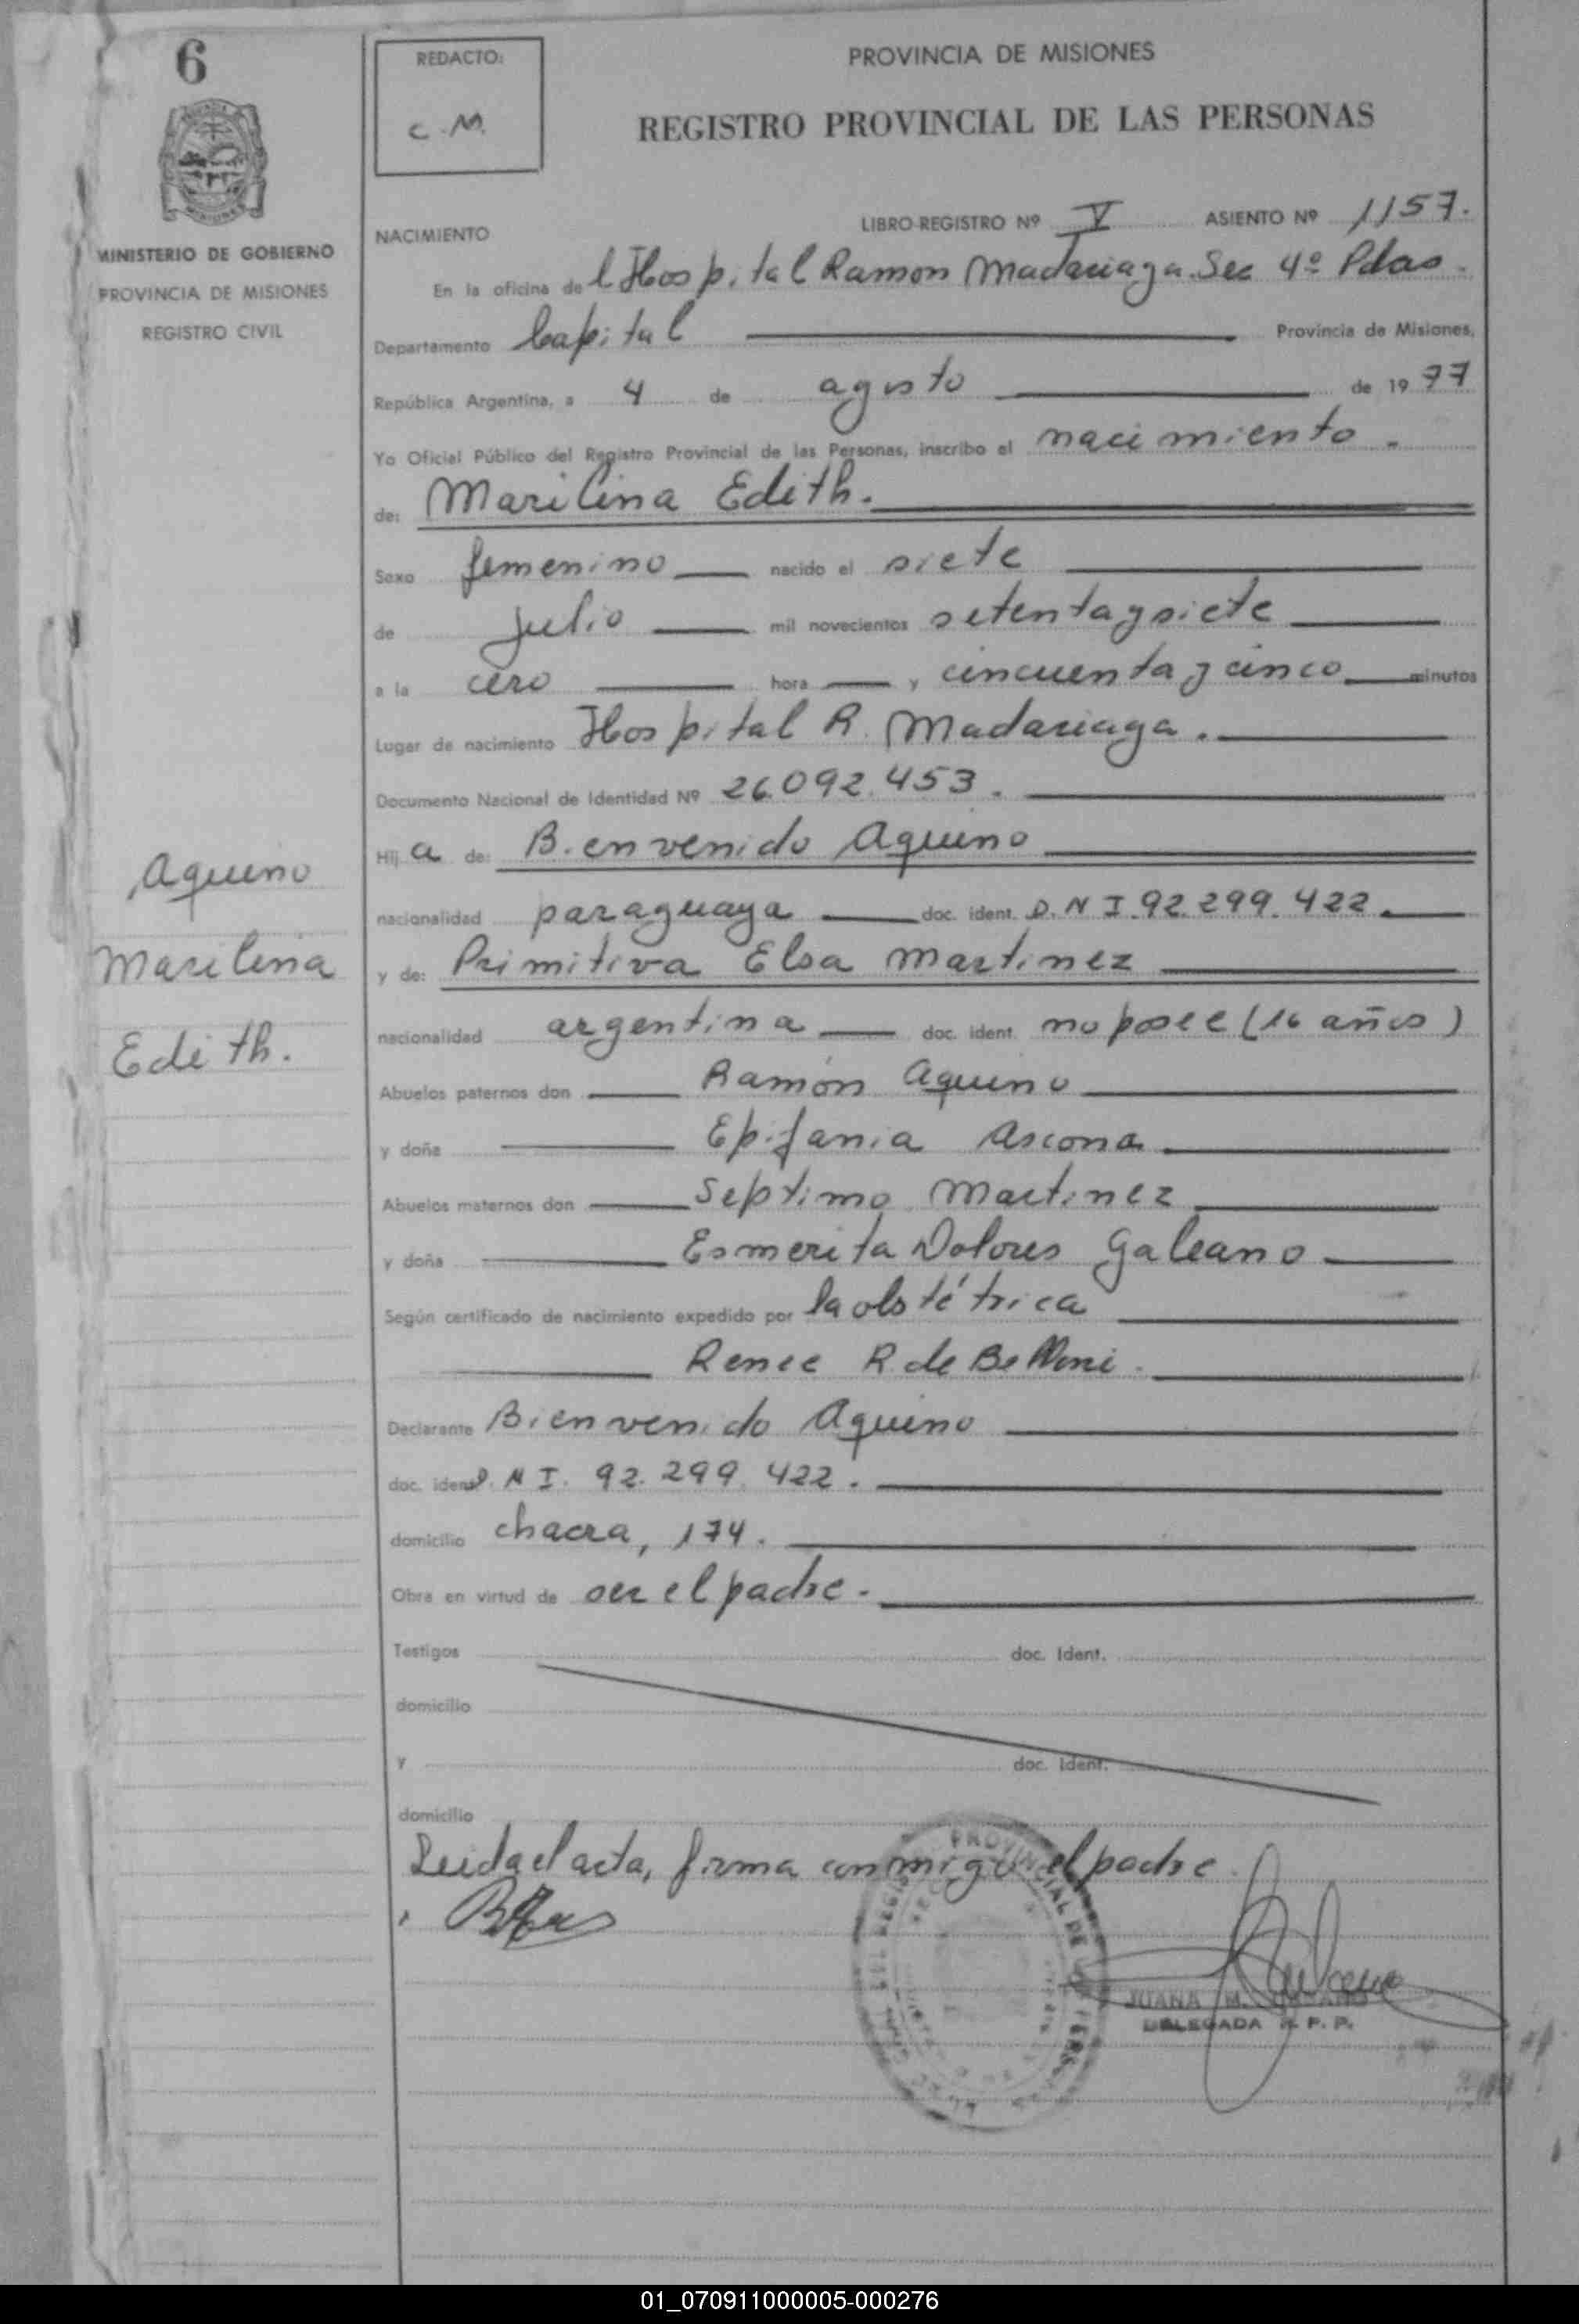 6
REDACTO:
C.M.
PROVINCIA DE MISIONES
REGISTRO PROVINCIAL DE LAS PERSONAS
MINISTERIO DE GOBIERNO
PROVINCIA DE MISIONES
REGISTRO CIVIL
NACIMIENTO
LIBRO-REGISTRO Nº V ASIENTO Nº 1157.
En la oficina del Hospital Ramon Madariaga. Sec 4º Pdas.
Departamento Capital Provincia de Misiones,
República Argentina, a 4 de agosto de 1977
Yo Oficial Público del Registro Provincial de las Personas, inscribo el nacimiento.
de: Marilina Edith.
Sexo femenino nacido el siete
de julio mil novecientos setenta y siete
a la cero hora y cincuenta y cinco minutos
Lugar de nacimiento Hospital R. Madariaga.
Documento Nacional de Identidad Nº 26.092.453.
Hija de: Bienvenido Aquino
nacionalidad paraguaya doc. ident. D.N I.92.299.422.
y de: Primitiva Elsa Martinez
nacionalidad argentina doc. ident. no posee (16 años)
Abuelos paternos don Ramón Aquino
y doña Epifania Ascona
Abuelos maternos don Septimo Martinez
y doña Esmerita Dolores Galeano
Según certificado de nacimiento expedido por la obstétrica
Renee R. de Belloni.
Declarante Bienvenido Aquino
doc. ident. D. N I. 92.299.422.
domicilio chacra, 174.
Obra en virtud de ser el padre.
Testigos doc. Ident.
domicilio
y doc. Ident.
domicilio
Leida el acta, firma conmigo el padre.
JUANA M.
DELEGADA R. P. P.
Aquino
Marilina
Edith.
01_070911000005-000276